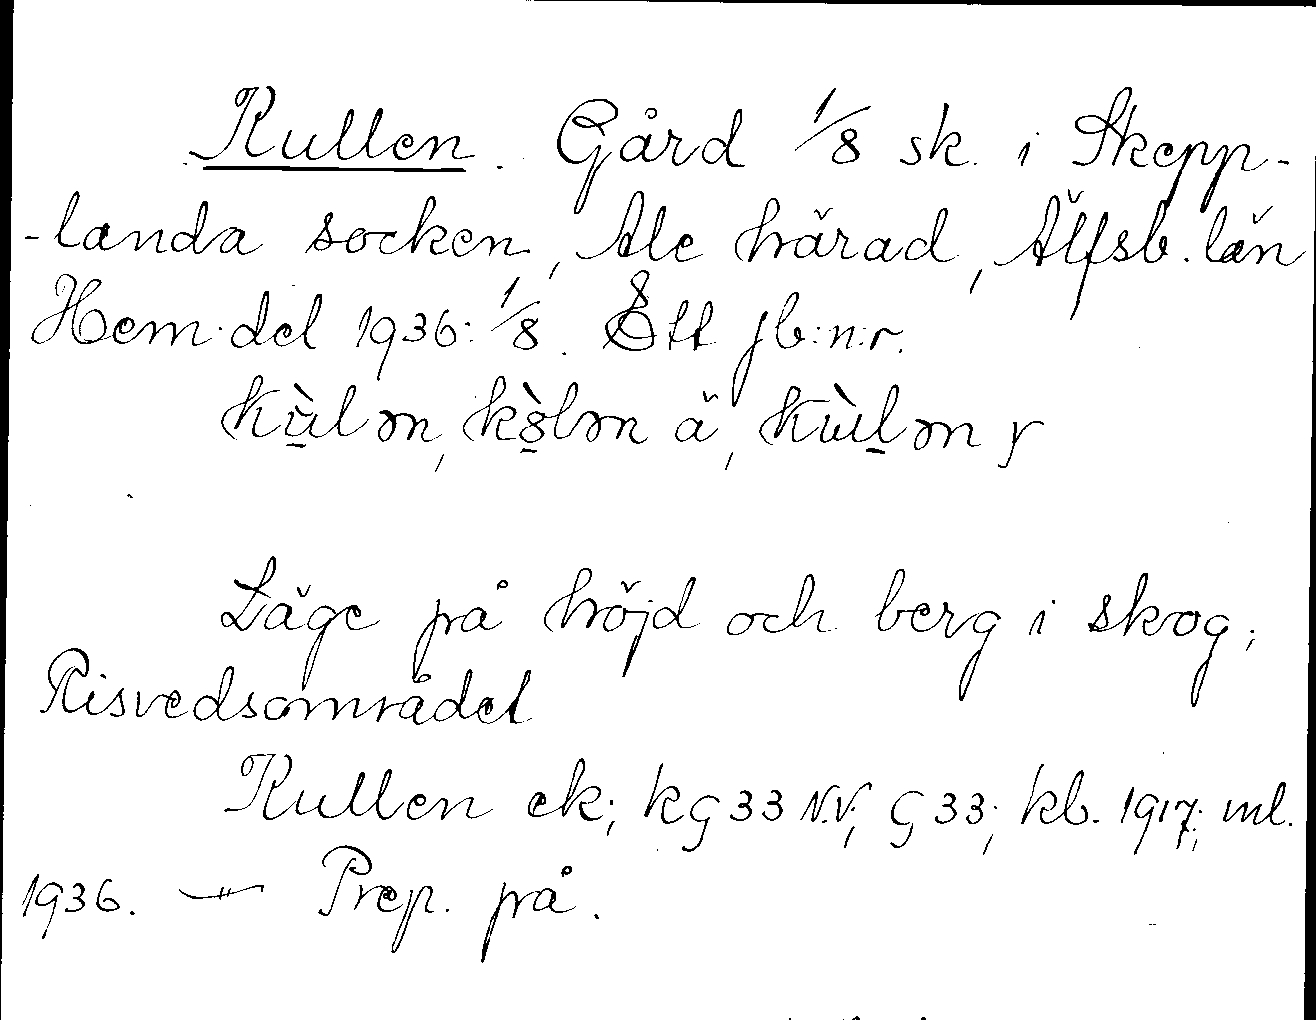 Kullen. Gård 1/8 sk. i Skepp-
-landa socken, Ale härad, Älfsb. län
Hem.del 1936: 1/8. Ett jb:n:r.
kùlən, kòlən ä, kùlən y
Läge på höjd och berg i skog;
Risvedsområdet
Kullen ek; kg 33 N.V; G 33; kb. 1917; ml.
1936. — Prep. på.